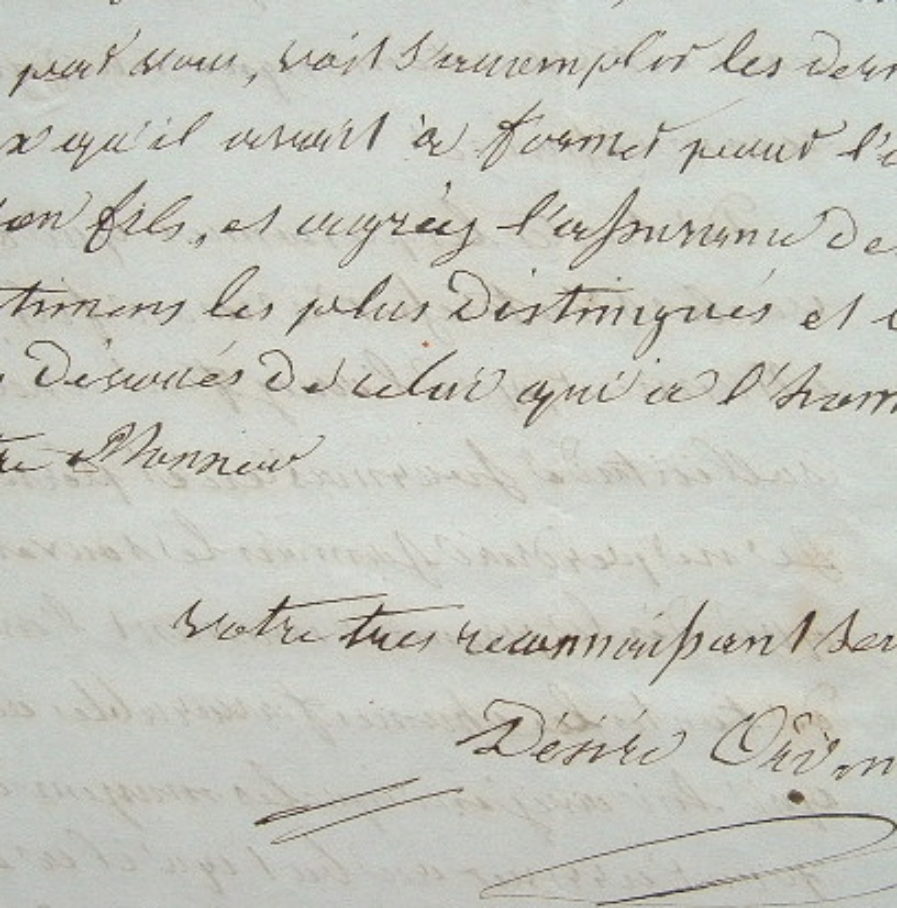 par vous, voit s'accomplir les der
x qu'il avait à former pour l'a
on fils, et agréez l'assurance de
timens les plus distingués et
dévoués de celui qui a l'honn
tre Monsieur
votre tres reconnaissant ser
Désiré